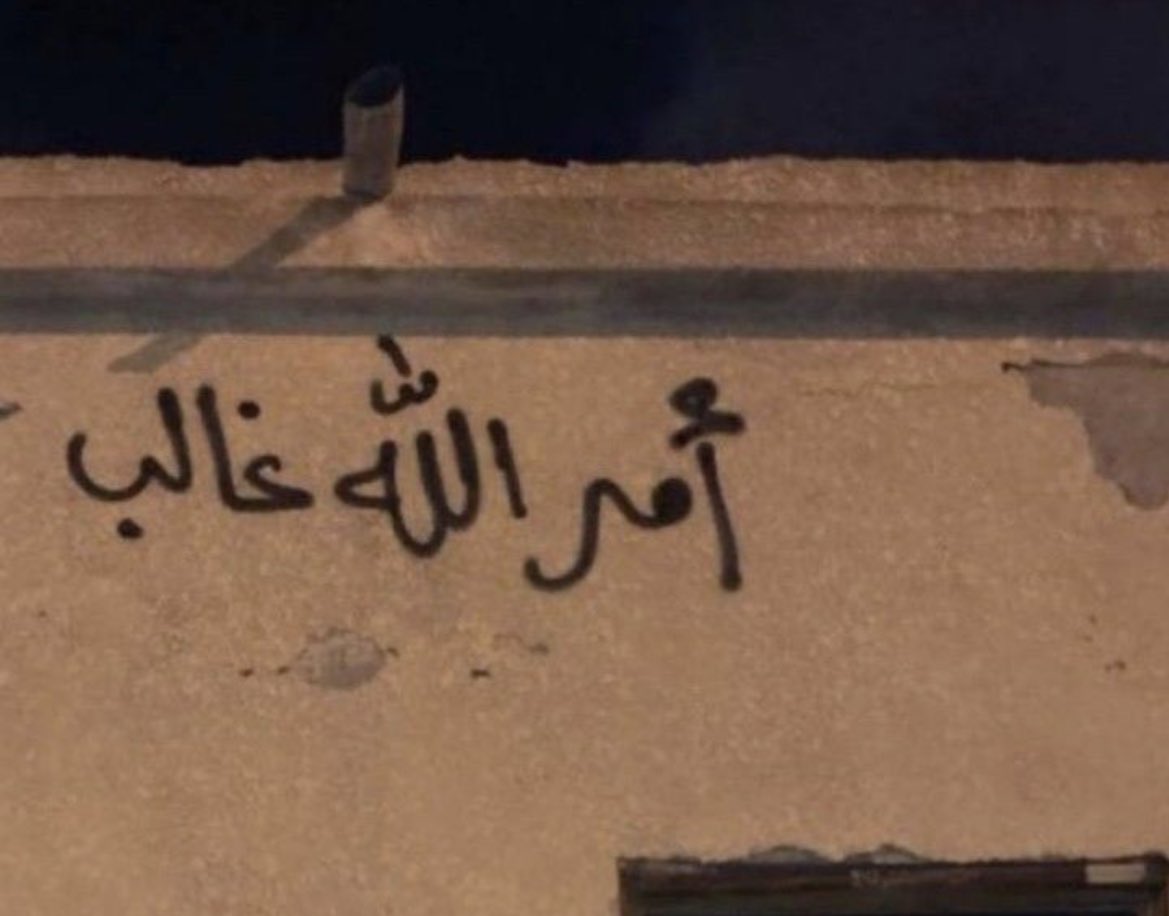 أمر اللّٰه غالب